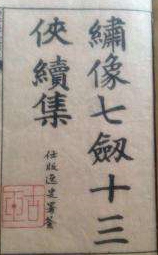 繡像七劔十三
俠續集